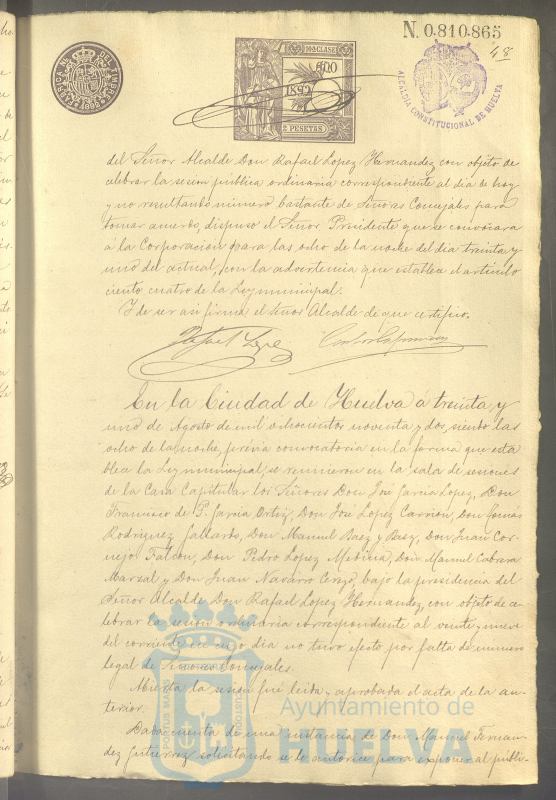 N. 0.810.865
48
FÁBRICA NAL DEL TIMBRE
1892
10ª CLASE
AÑO
1892
2 PESETAS
ALCALDIA CONSTITUCIONAL DE HUELVA
del Señor Alcalde Don Rafael Lopez Hernandez con objeto de
celebrar la sesion pública ordinaria correspondiente al dia de hoy
y no resultando número bastante de Señores Concejales para
tomar acuerdo, dispuso el Señor Presidente que se convocara
á la Corporacion para las ocho de la noche del dia treinta y
uno del actual, con la advertencia que establece el artículo
ciento cuatro de la Ley municipal.
Y de ser asi firma el Señor Alcalde de que certifico.
Rafael Lopez
En la Ciudad de Huelva a treinta y
uno de Agosto de mil ochocientos noventa y dos, siendo las
ocho de la noche, previa convocatoria en la forma que esta
blece la Ley municipal, se reunieron en la sala de sesiones
de la Casa Capitular los Señores Don José Garcia Lopez, Don
Francisco de P. Garcia Ortiz, Don José Lopez Carrion, Don Tomas
Rodriguez Gallardo, Don Manuel Baez y Baez, Don Juan Cor-
nejo Falcon, Don Pedro Lopez Medina, Don Manuel Cabara
Marzal y Don Juan Navarro Cerezo, bajo la presidencia del
Señor Alcalde Don Rafael Lopez Hernandez, con objeto de ce-
lebrar la sesion ordinaria correspondiente al veinte y nueve
del corriente en cuyo dia no tuvo efecto por falta de número
legal de Señores Concejales.
Abierta la sesion fué leida y aprobada el acta de la an-
terior.
Dada cuenta de una instancia de Don Manuel Fernan-
dez Gutierrez solicitando se le autorice para exponer al públi-
PORTUS MARIS
CUSTODIA
Ayuntamiento de
HUELVA